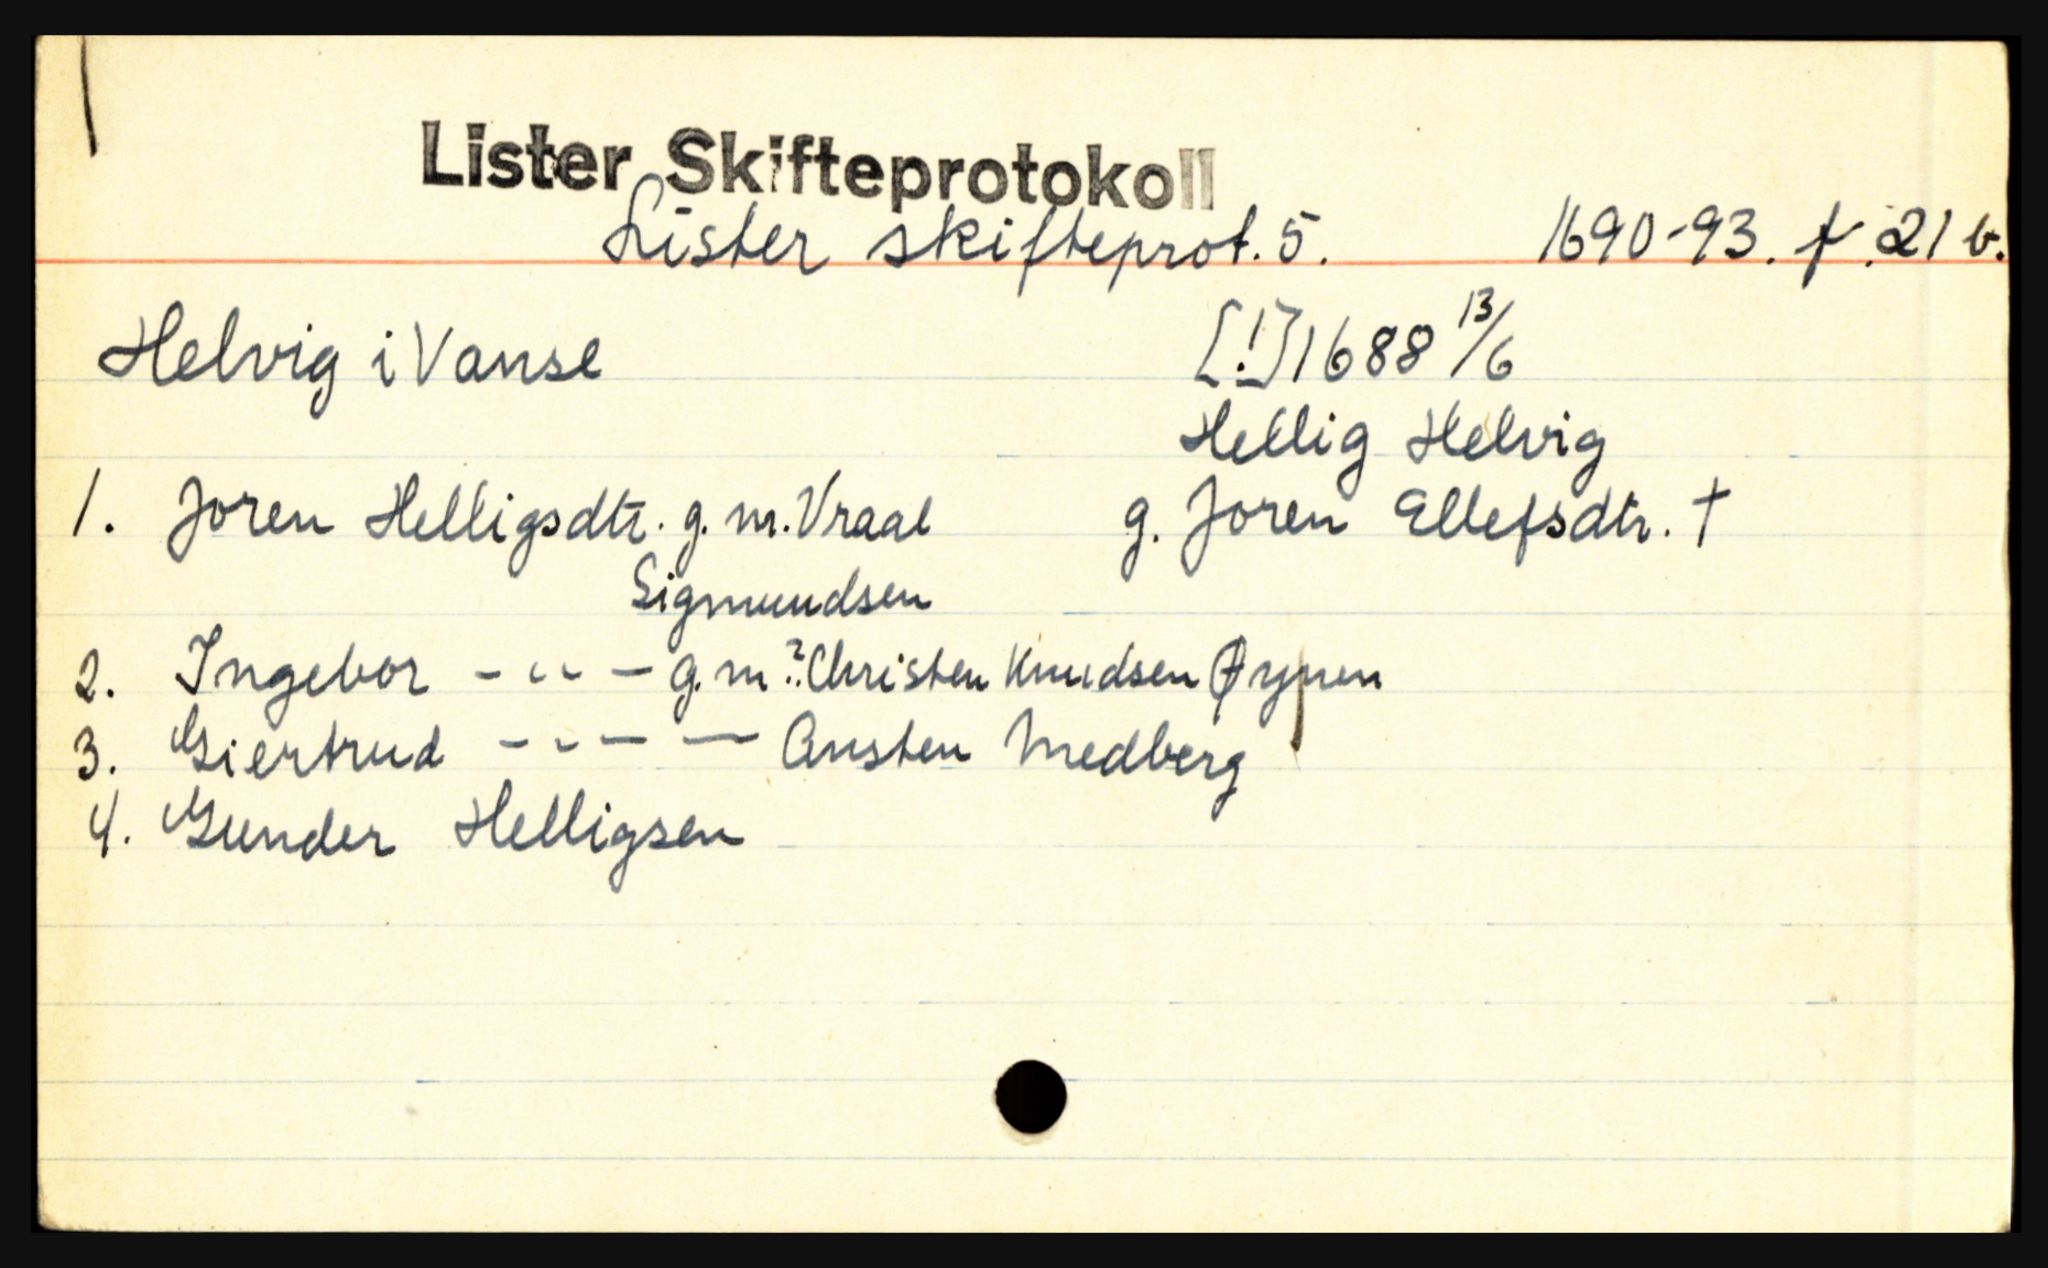 Lister Skifteprotokoll
Lister skifteprot. 5. 1690-93. f. 21 b.
Helvig i Vanse [!] 1688 13/6
Hellig Helvig
1. Joren Helligsdtr. g. m. Vraal g. Joren Ellefsdtr. †
Sigmundsen
2. Ingebor - " - g. m ?: Christen Knudsen Øynen
3. Giertrud - " - — Austen Medberg
4. Gunder Helligsen